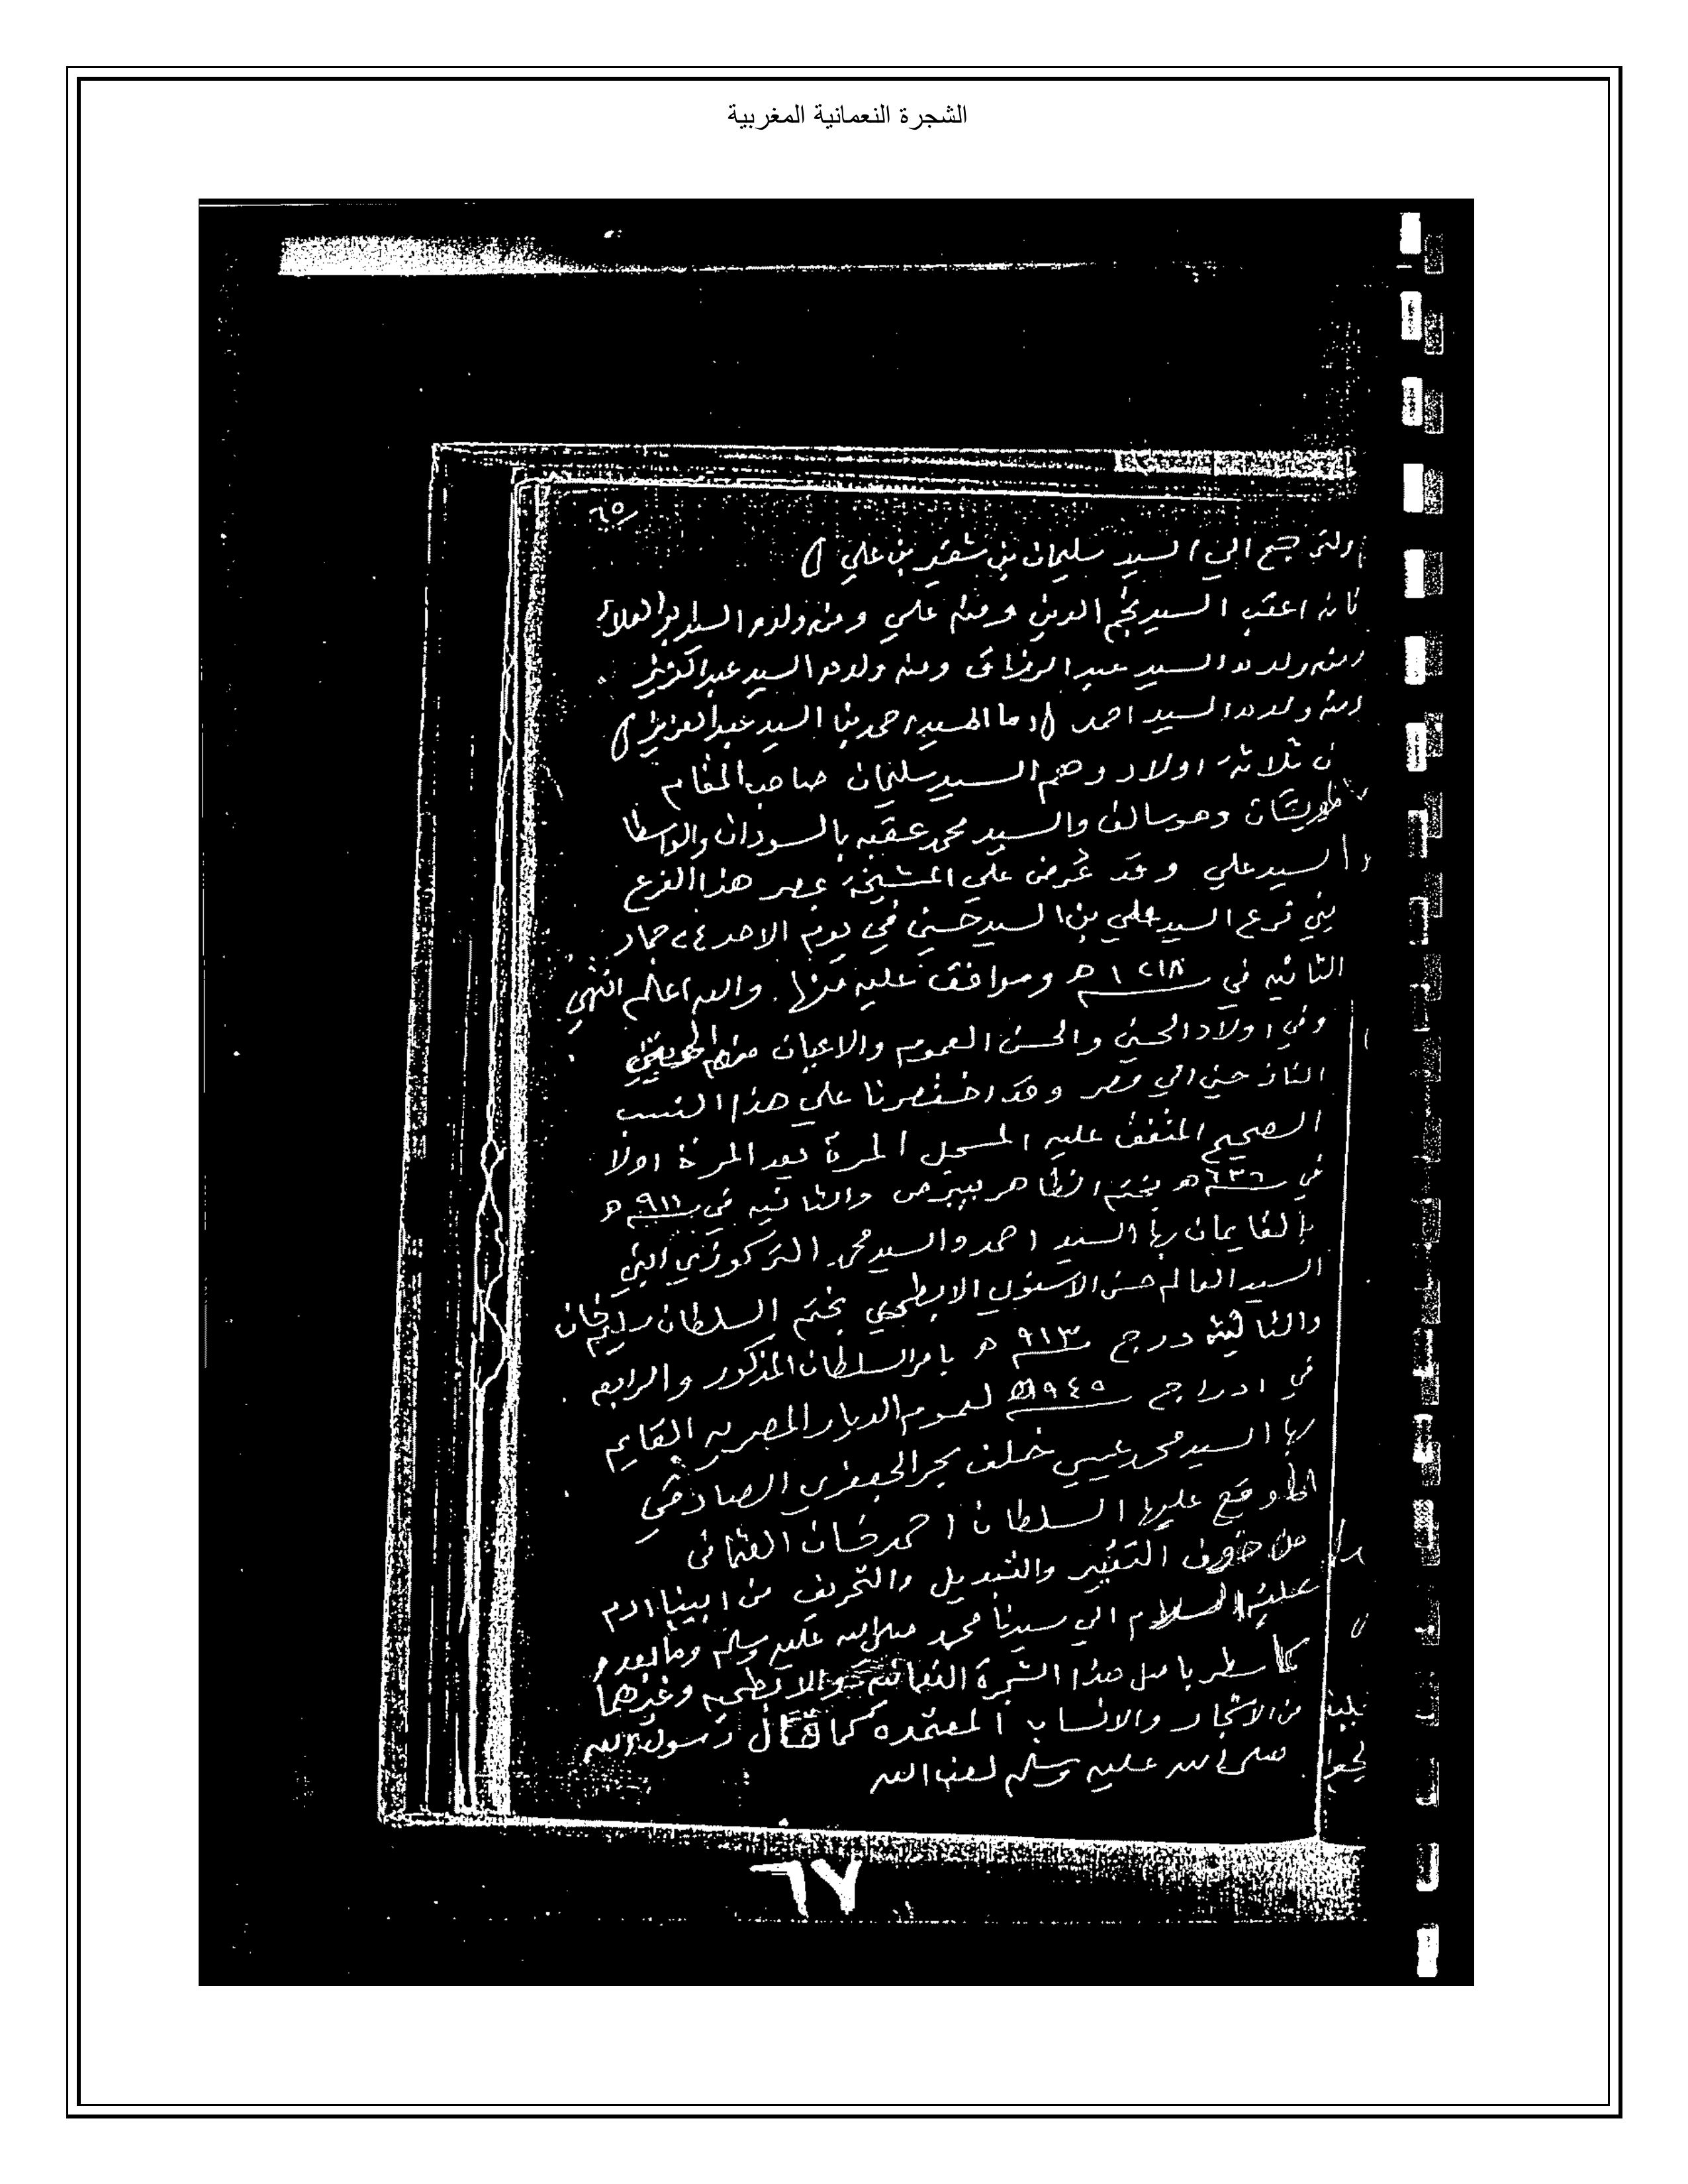 الشجرة النعمانية المغربية
٦٥
ولنرجع الي السيد سليمان بن شقير بن علي
فانه اعقب السيد نجم الدين ومنه علي ومنه ولده السيد
ومنه ولده السيد عبد الرزاق ومنه ولده السيد عبد العزيز
ومنه ولده السيد احمد اما السيد احمد بن السيد عبد العزيز
ثلاثة اولاد وهم السيد سليمان صاحب المقام
وهو سالف والسيد محمد عقبه بالسودان
السيد علي وقد عرض علي المشيخة عصر هذا الفرع
فرع السيد علي بن السيد حسين في يوم الاحد ٢٤ جماد
الثانيه في ١٢١٨ هـ وموافق عليه منها . والله اعلم انتهي
وفي اولاد الحسين والحسن العموم والاعيان
النازحين الي مصر وقد اختصرنا علي هذا النسب
الصحيح المتفق عليه المسجل المرة بعد المرة اولا
في ٦٣٦ هـ بختم الظاهر بيبرص والثانيه في ٩١١ هـ
القايمان بها السيد احمد والسيد محمد
السيد العالم حسن الابطحي بختم السلطان سليم خان
والثالثة درج ٩١٣ هـ بامر السلطان المذكور والرابعه
في ادراج ٩٤٥ هـ لعموم الديار المصريه القايم
بها السيد محمد عيسي خلف بحر الجعفري الصادقي
وقع عليها السلطان احمد خان العثماني
من خوف التغيير والتبديل والتحريف من ابينا ادم
عليه السلام الي سيدنا محمد صلي الله عليه وسلم وما بعده
كما سطر باصل هذا الشجرة النعمانيه والابطحيه وغيرهما
من الاشجار والانساب المعتمده كما قال رسول الله
صلي الله عليه وسلم لعن الله
٦٧